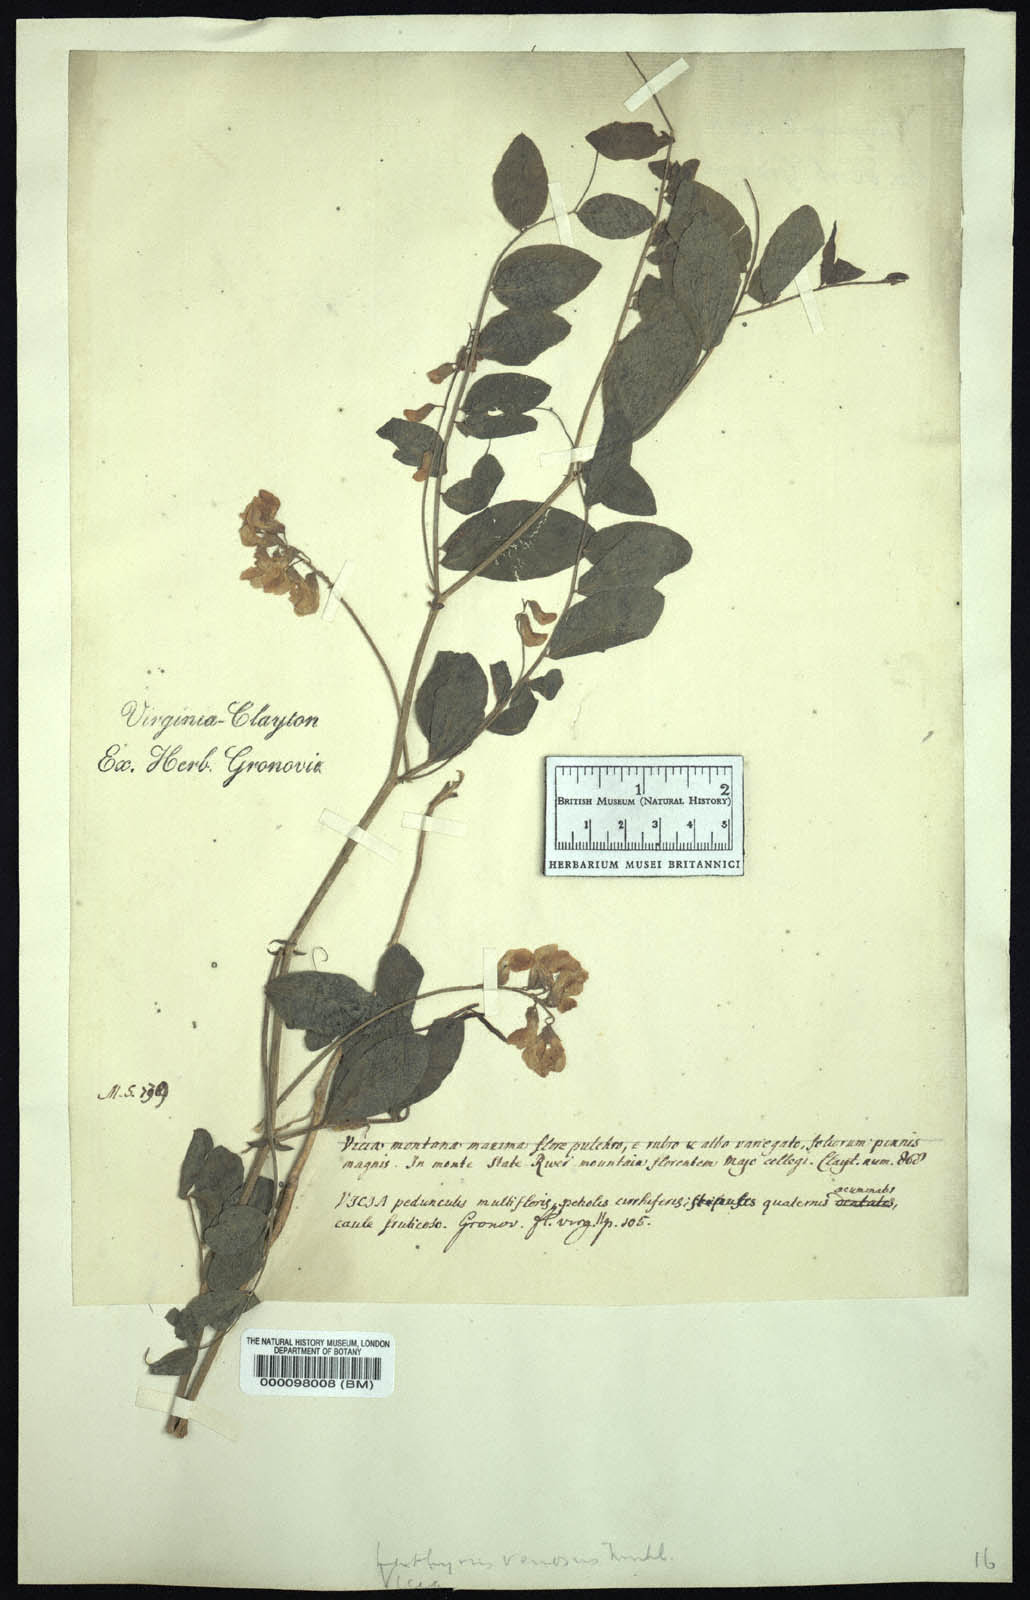 Virginia-Clayton
Ex. Herb. Gronovii
1 2
BRITISH MUSEUM (NATURAL HISTORY)
1 2 3 4 5
HERBARIUM MUSEI BRITANNICI
M.S.
Vicia montana maxima flore pulchro, e rubro & albo variegato, foliorum pinnis
magnis. In monte State River mountain florentem Majo collegi. Clayt. num. 860
VICIA pedunculis multifloris, petiolis cirrhiferis, stipulis quaternis dentatis, acuminatis
caule fruticoso. Gronov. fl. virg. II p. 105.
THE NATURAL HISTORY MUSEUM, LONDON
DEPARTMENT OF BOTANY
000098008 (BM)
Lathyrus venosus Muhl.
Vicia
16